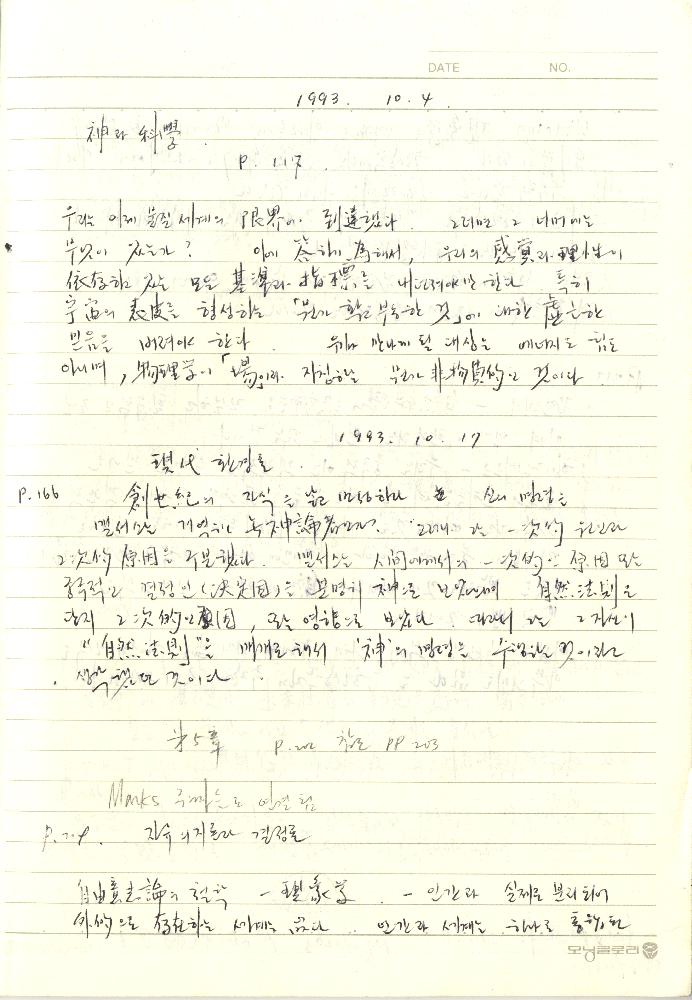 DATE NO.
1993. 10. 4
神과 科學
P. 117
우리는 이제 물질세계의 限界에 到達했다. 그러면 그 너머에는
무엇이 있는가? 이에 答하기 爲해서, 우리의 感覺과 理性이
依存하고 있는 모든 基準과 指標를 내던져야만 한다 특히
宇宙의 表皮를 형성하는 「무언가 확고부동한 것」에 대한 虛
믿음을 버려야 한다. 우리가 만나게 될 대상은 에너지도 힘도
아니며, 物理學이 「場」이라 지칭하는 무언가 非物質的인 것이다.
1993. 10. 17
現代 환경론.
P.166 創世紀의 지식을 신의 명령은
맬서스는 神論者 그래서 그는 一次的 원인과
2次的 原因을 구분했다. 맬서스는 一次的인 原因 또는
궁극적인 결정인(決定因)은 분명히 神으로 보았으며 自然法則은
단지 2次的인 原因, 또는 영향으로 보았다. 따라서 그는 그 자신이
"自然法則"을 매개로 해서 '神'의 명령을 수행하는 것이라고
생각했던 것이다.
第5章 P.202 참조 PP 203
Marks 연결됨
P.209. 자유의지론과 결정론
自由意志論의 철학 - 理象学. - 인간과 실제로 분리되어
外的으로 存在하는 세계는 없다. 인간과 세계는 하나로 통합된
모닝글로리